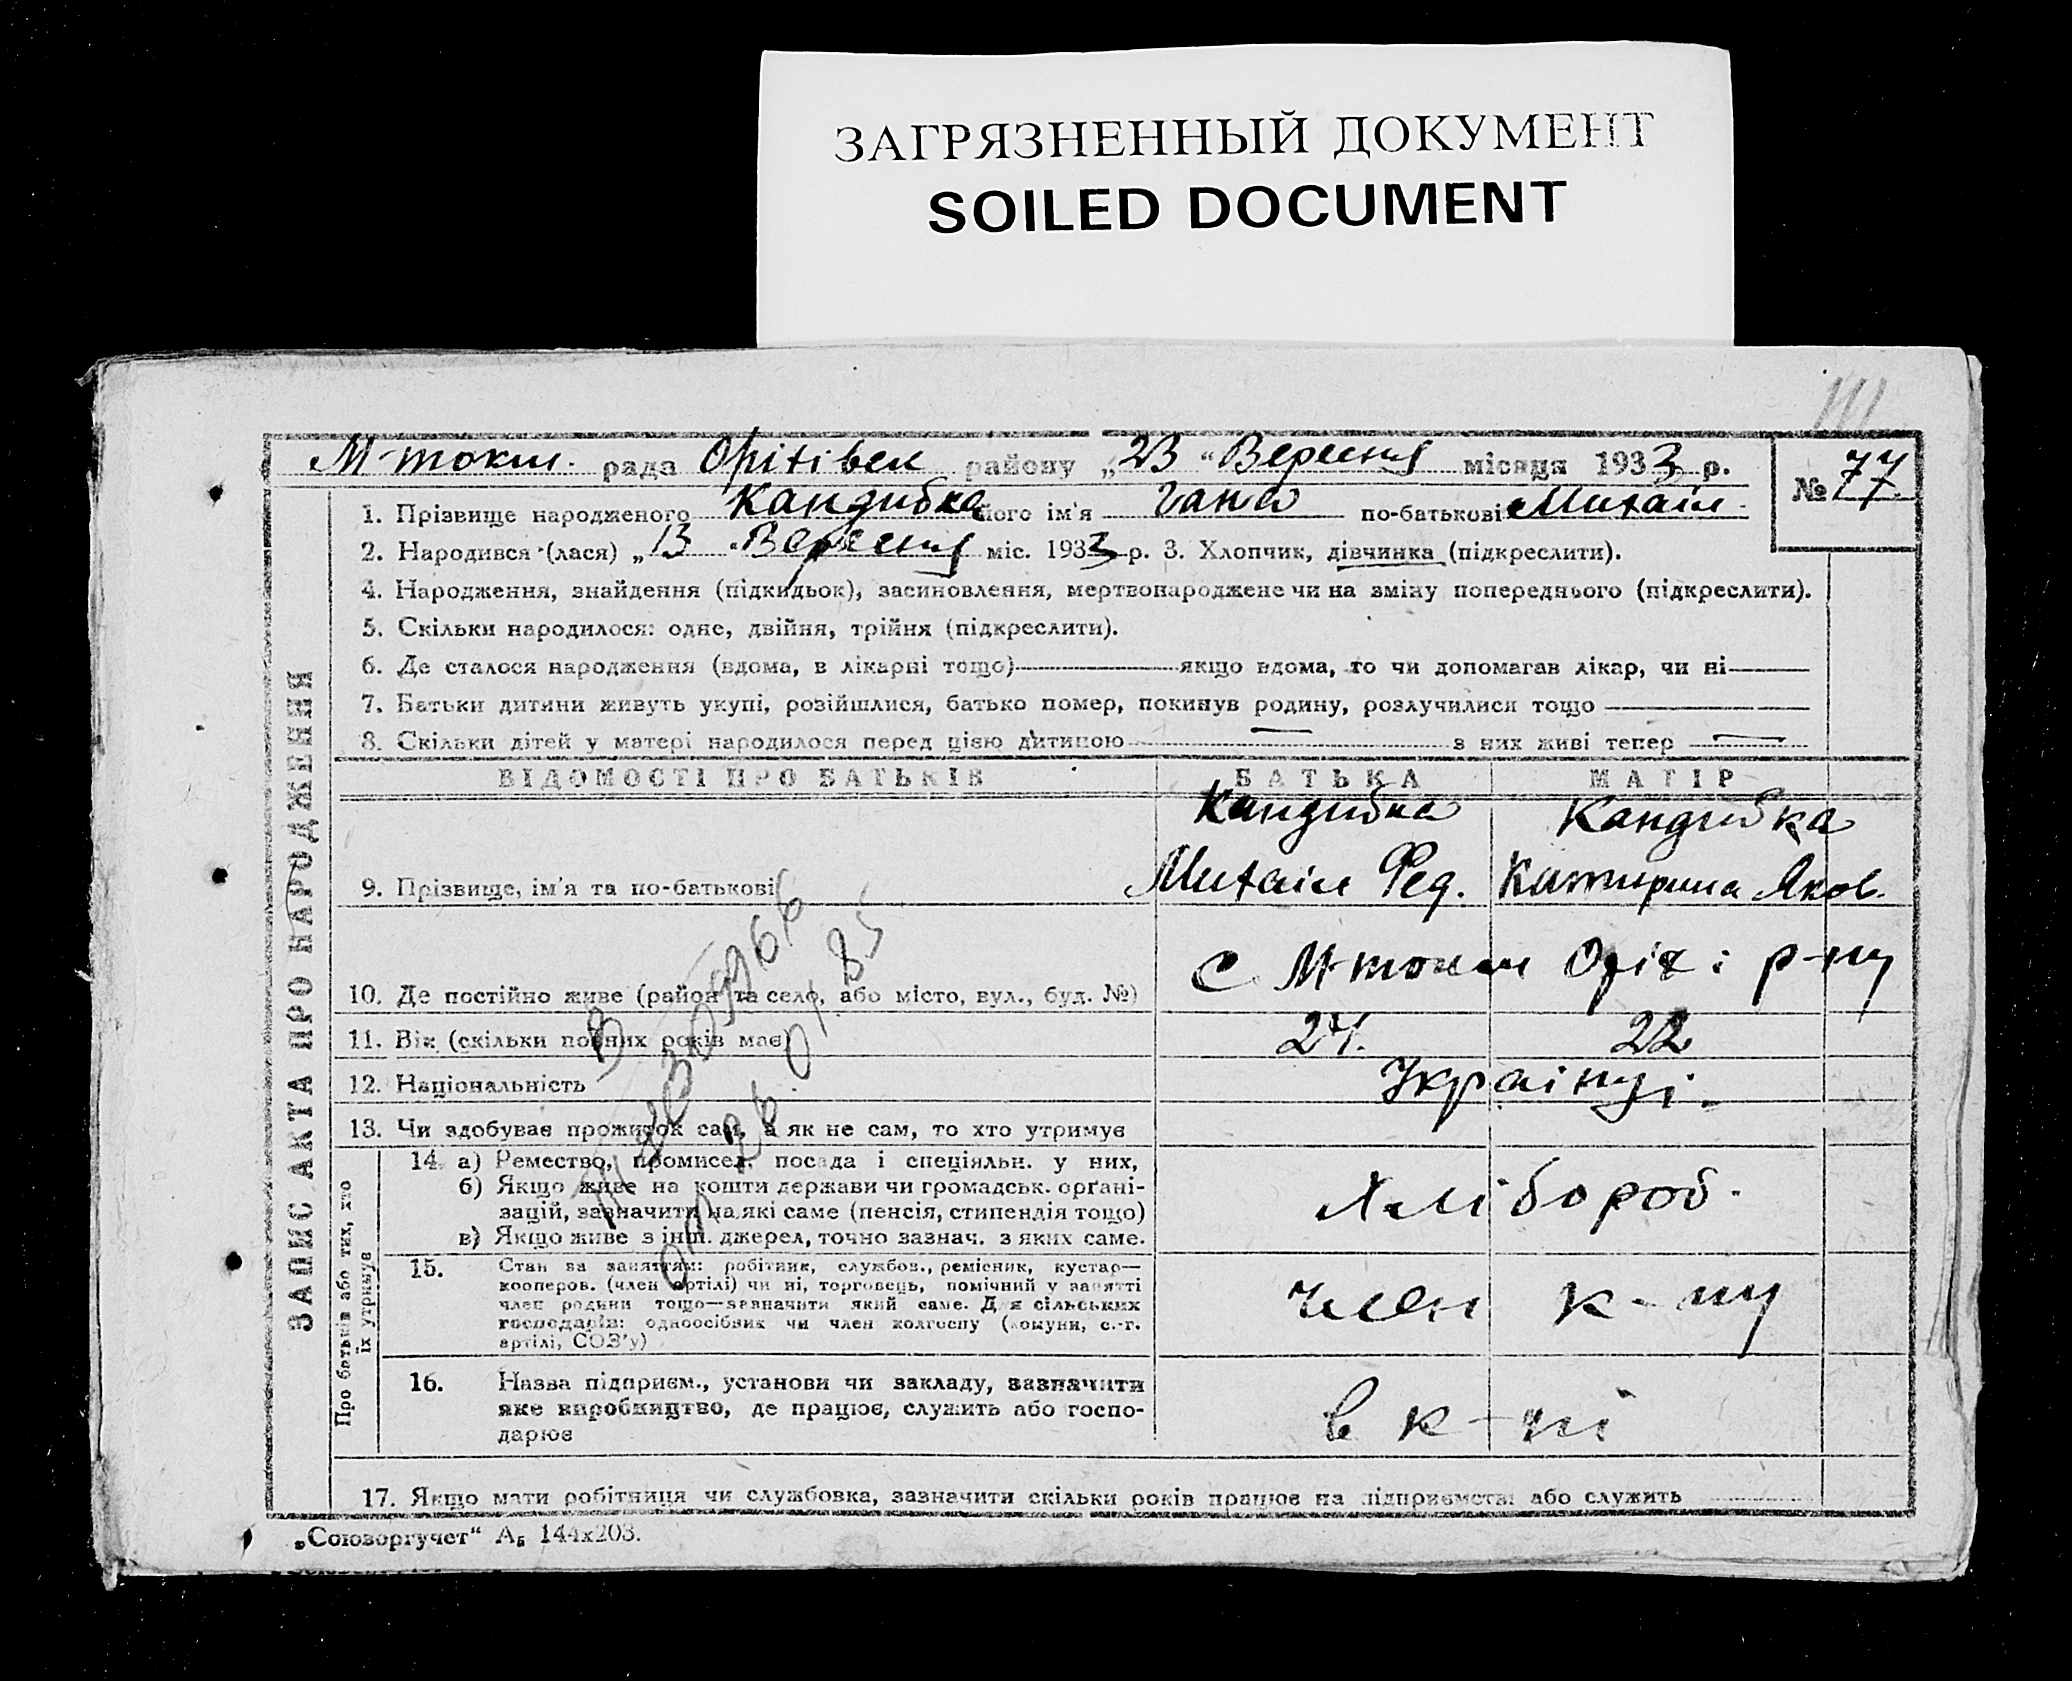 ЗАГРЯЗНЕННЫЙ ДОКУМЕНТ
SOILED DOCUMENT
111
М-токм. рада Оріхівск району „23 " Вересня місяця 1933 р.
№ 77
1. Прізвище народженого Кандибка його ім'я Гана по-батькові Михайл.
2. Народився (лася) „13 " Вересня міс. 1933 р. 3. Хлопчик, дівчинка (підкреслити).
4. Народження, знайдення (підкидьок), засиновлення, мертвонароджене чи на зміну попереднього (підкреслити).
5. Скільки народилося: одне, двійня, трійня (підкреслити).
6. Де сталося народження (вдома, в лікарні тощо) — якщо вдома, то чи допомагав лікар, чи ні —
7. Батьки дитини живуть укупі, розійшлися, батько помер, покинув родину, розлучилися тощо —
8. Скільки дітей у матері народилося перед цією дитиною — з них живі тепер —
ЗАПИС АКТА ПРО НАРОДЖЕННЯ
ВІДОМОСТІ ПРО БАТЬКІВ БАТЬКА МАТІР
Кандибка Кандибка
9. Прізвище, ім'я та по-батькові Михаіл Фед. Катирина Яков.
10. Де постійно живе (район та село, або місто, вул., буд. №) с М-токм Оріх і р-ну
11. Вік (скільки повних років має) 24. 22
12. Національність Українці.
13. Чи здобуває прожиток сам, а як не сам, то хто утримує
Про батьків або тих, хто
їх утримує
14. а) Ремество, промисел, посада і спеціяльн. у них,
б) Якщо живе на кошти держави чи громадськ. орґані-
зацій, зазначити на які саме (пенсія, стипендія тощо)
в) Якщо живе з інш. джерел, точно зазнач. з яких саме.
Хлібороб.
15. Стан за заняттям: робітник, службов., ремісник, кустар—
кооперов. (член артілі) чи ні, торговець, помічний у занятті
член родини тощо—зазначити який саме. Для сільських
господарів: одноосібник чи член колгоспу (комуни, с.-г.
артілі, СОЗ'у)
член к-пу
16. Назва підприєм., установи чи закладу, зазначити
яке виробництво, де працює, служить або госпо-
дарює
в к-пі
17. Якщо мати робітниця чи службовка, зазначити скільки років працює на підприємстві або служить
„Союзоргучет" А5 144х203.
26.01.85